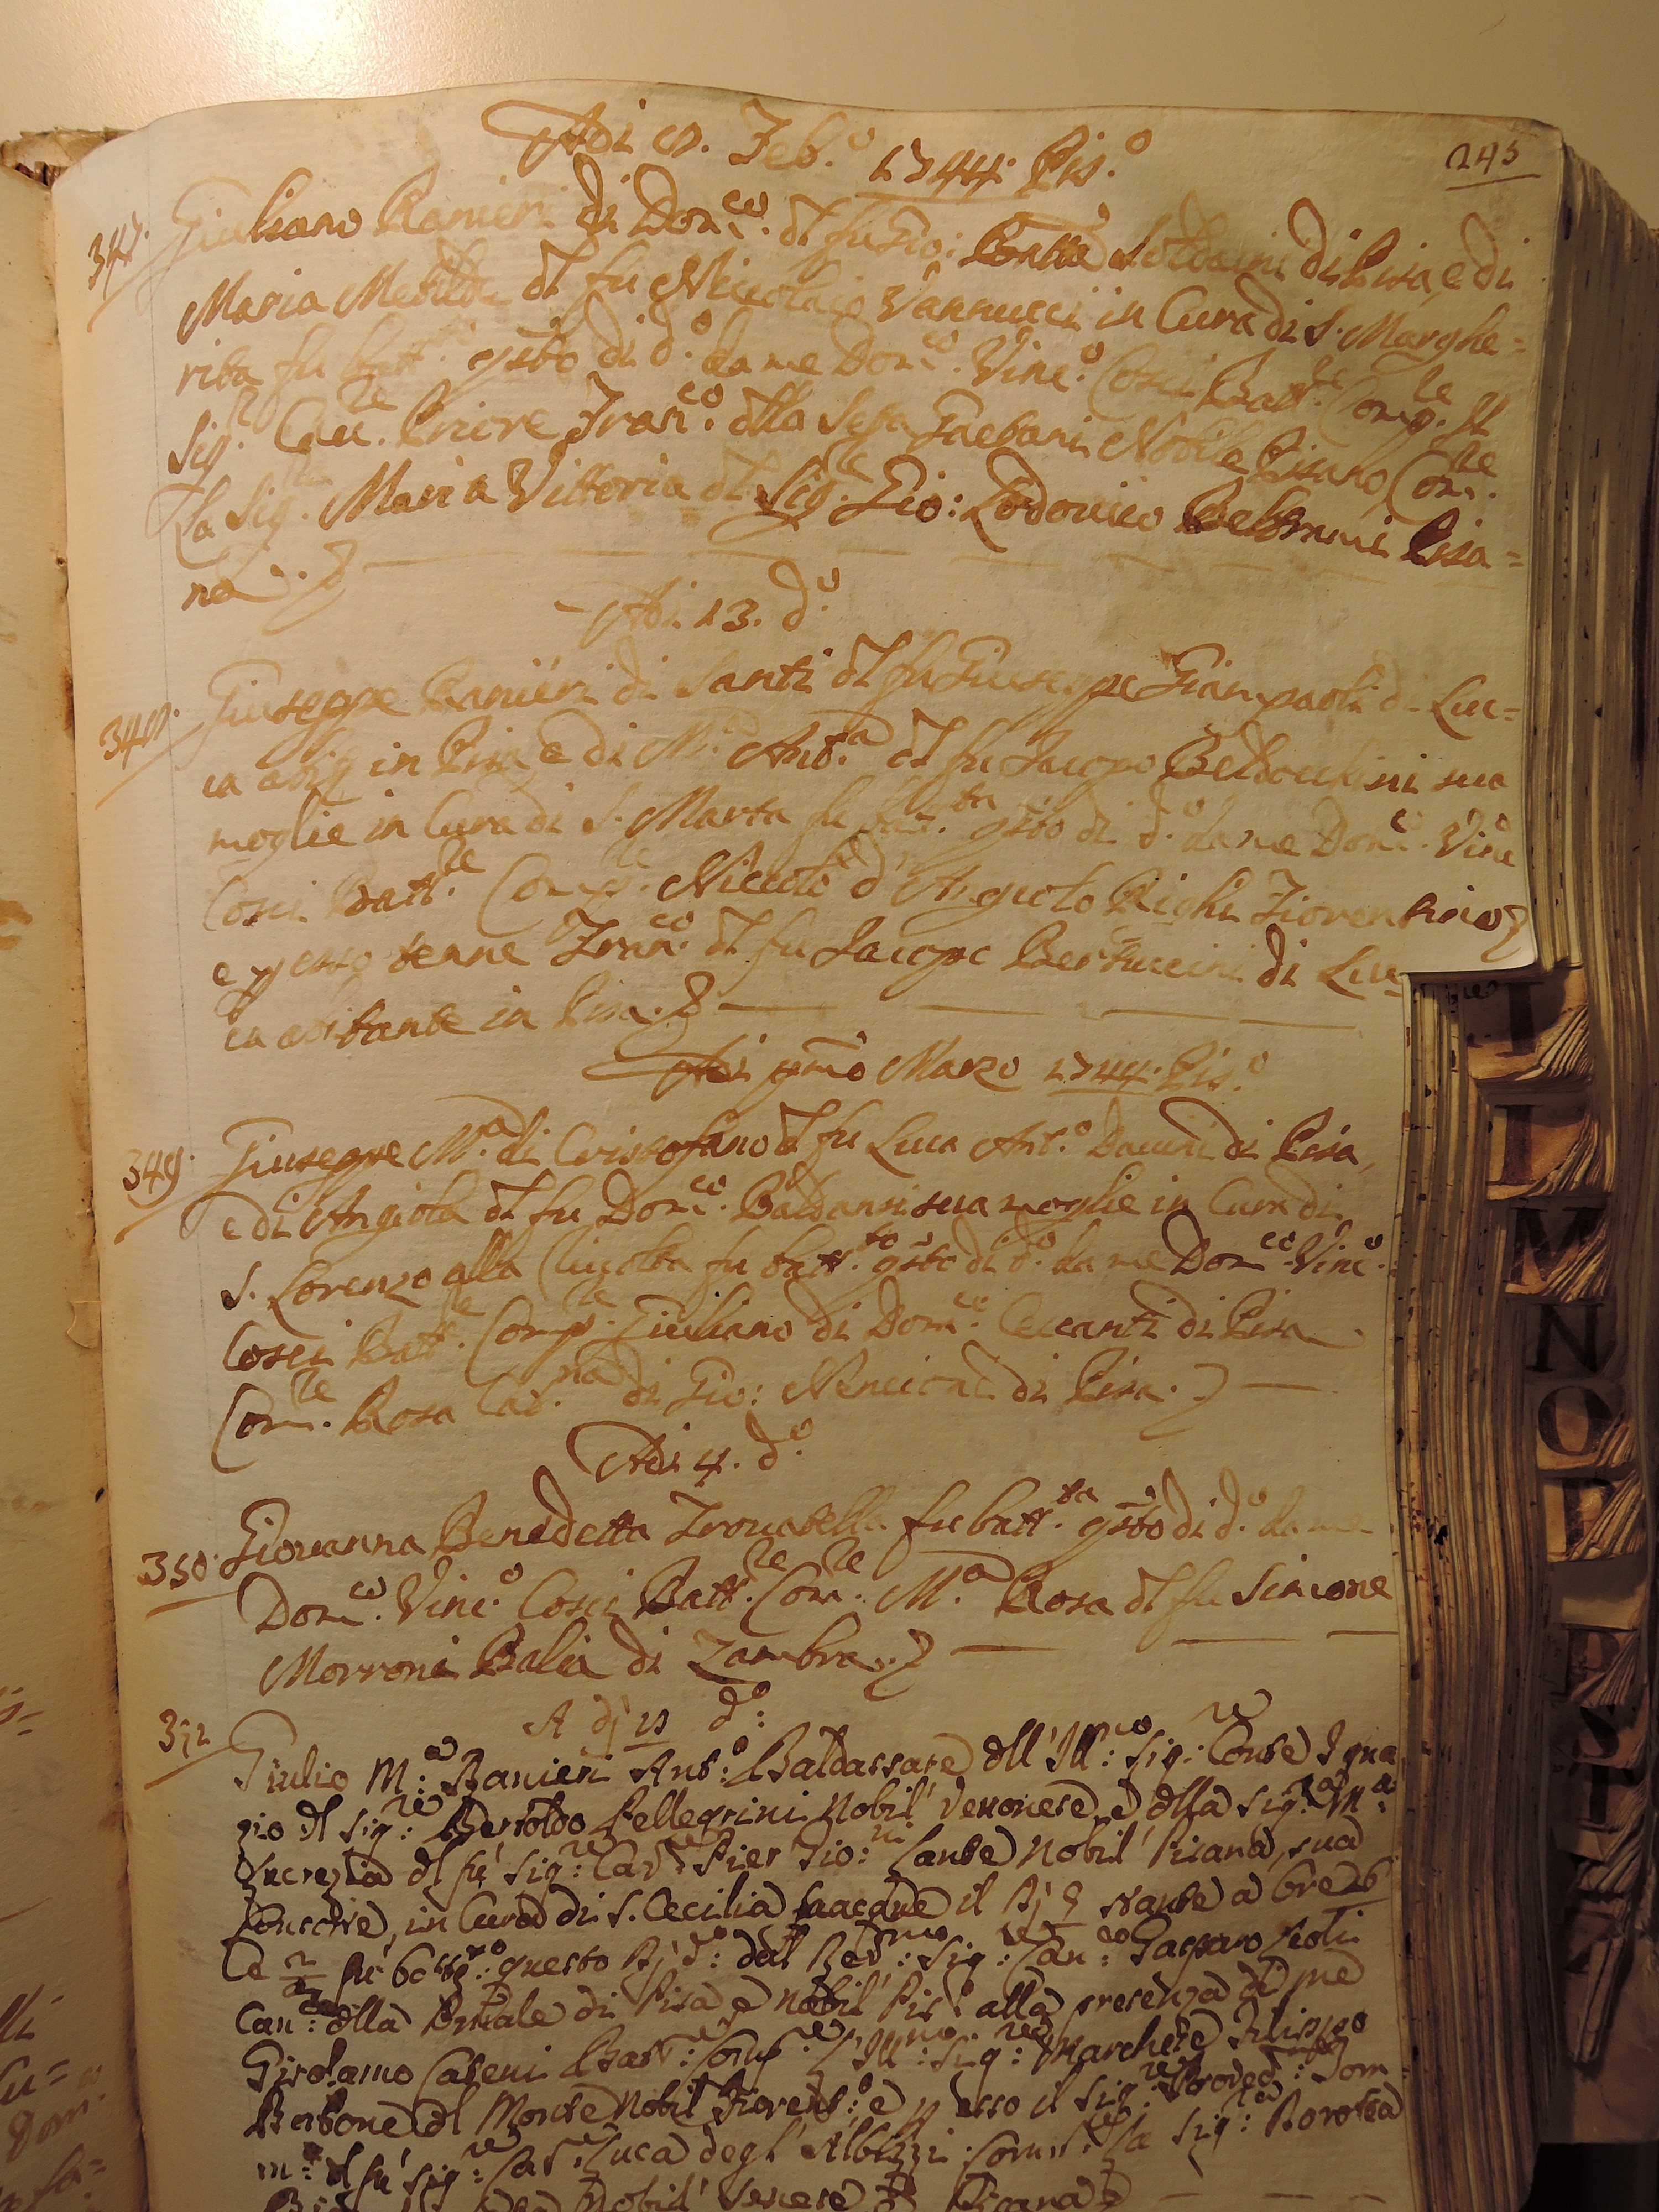 245
Adi 8. Feb.o 1744. Pis.o
347. Giuliano Ranieri di Dom.co dl fu Gio: Batta Soldaini di Pisa, e di
Maria Metilde dl fu Niccolaio Vannucci in Cura di S. Marghe=
rita fu batt.to qsto di d.o da me Dom.co Vinc.o Cosci Batt.re Comp.re Il
Sig.r Cav.re Priore Fran.co dlla Seta Gaetani Nobile Pisano, Com.re
La Sig.ra Maria Vittoria dl Sig.re Gio: Lodovico Pisa=
na.
Adi 13. d.o
348. Giuseppe Ranieri di Santi dl fu Giuseppe Giampaoli di Luc=
ca abit in Pisa e di M.a Ant.a dl fu Jacopo sua
moglie in Cura di S. Marta fu batt.to qsto di d.o da me Dom.co Vinc.o
Cosci Batt.re Comp.re Niccolò d'Angiolo Righi Fiorentino
e p esso tenne Fran.co dl fu Jacopo Bertuccini di Luc=
ca abitante in Pisa.
Adi pmo Marzo 1744. Pis.o
349. Giuseppe M.a di Cristofano dl fu Luca Ant.o Dacini di Pisa,
e di Angiola dl fu Dom.co Baldanzi sua moglie in Cura di
S. Lorenzo alla fu batt.to qsto di d.o da me Dom.co Vinc.o
Cosci Batt.re Comp.re Giuliano di Dom.co Ceccanti di Pisa
Com.re Rosa Cat.na di Gio: Nencioni di Pisa.
Adi 4. d.o
350. Giovanna Benedetta Trovatella fu batt.ta qsto di d.o da me
Dom.co Vinc.o Cosci Batt.re Com.re M.a Rosa dl fu Simone
Morroni Balia di Zambra.
A dì d.o:
351 Giulio M:a Ranieri Ant:o Baldassare dll'Ill:mo Sig:re Conte Igna
zio dl Sig:re Bertoldo Pellegrini Nobil' Veronese, e dlla Sig:ra M:a
Lucrezia dl fù Sig:re Cav:re Pier Gio: Lante Nobil' Pisana, sua
Consorte, in Cura di S. Cecilia nacque il dì stante a ore
e fù batt:o questo dì d:o dal Rev:mo Sig:re Can:co Gasparo
Can:co dlla Pmale di Pisa e nobil' Pis:o alla presenza di me
Girolamo Cateni Batt:re Comp:re L'Ill:mo Sig:re Marchese Filippo
Borbone dl Monte Nobil' Fiorent:o e p esso il Sig:re Proved:re Tom=
m:o dl fù Sig:re Cav:re Luca degl' Albizzi: Com:re La Sig:ra
Nobil' Pisana